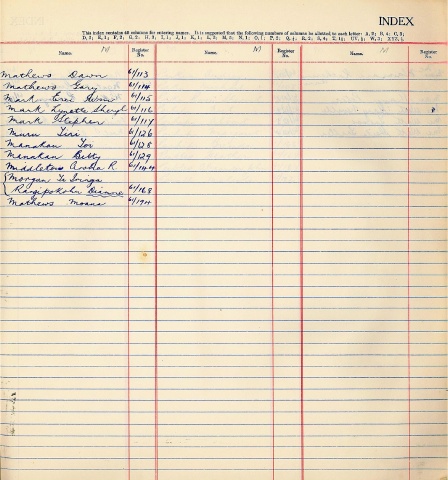 INDEX
This index contains 48 columns for entering names. It is suggested that the following numbers of columns be allotted to each letter: A, 2; B, 4; C, 3;
Name. M Register No. Name. M Register No. Name. M Register No.
Mathews Dawn 61/113
Mathews Gary 61/114
Mark Eric 61/115
Mark Lynette Sheryl 61/116
Mark Stephen 61/117
Muru Tiri 61/126
Manahan Tor 61/128
Manahan Betty 61/129
Middleton R. 61/144
Morgan Te Iringa
Rangipokohu Dianne 61/168
Mathews Moana 61/194